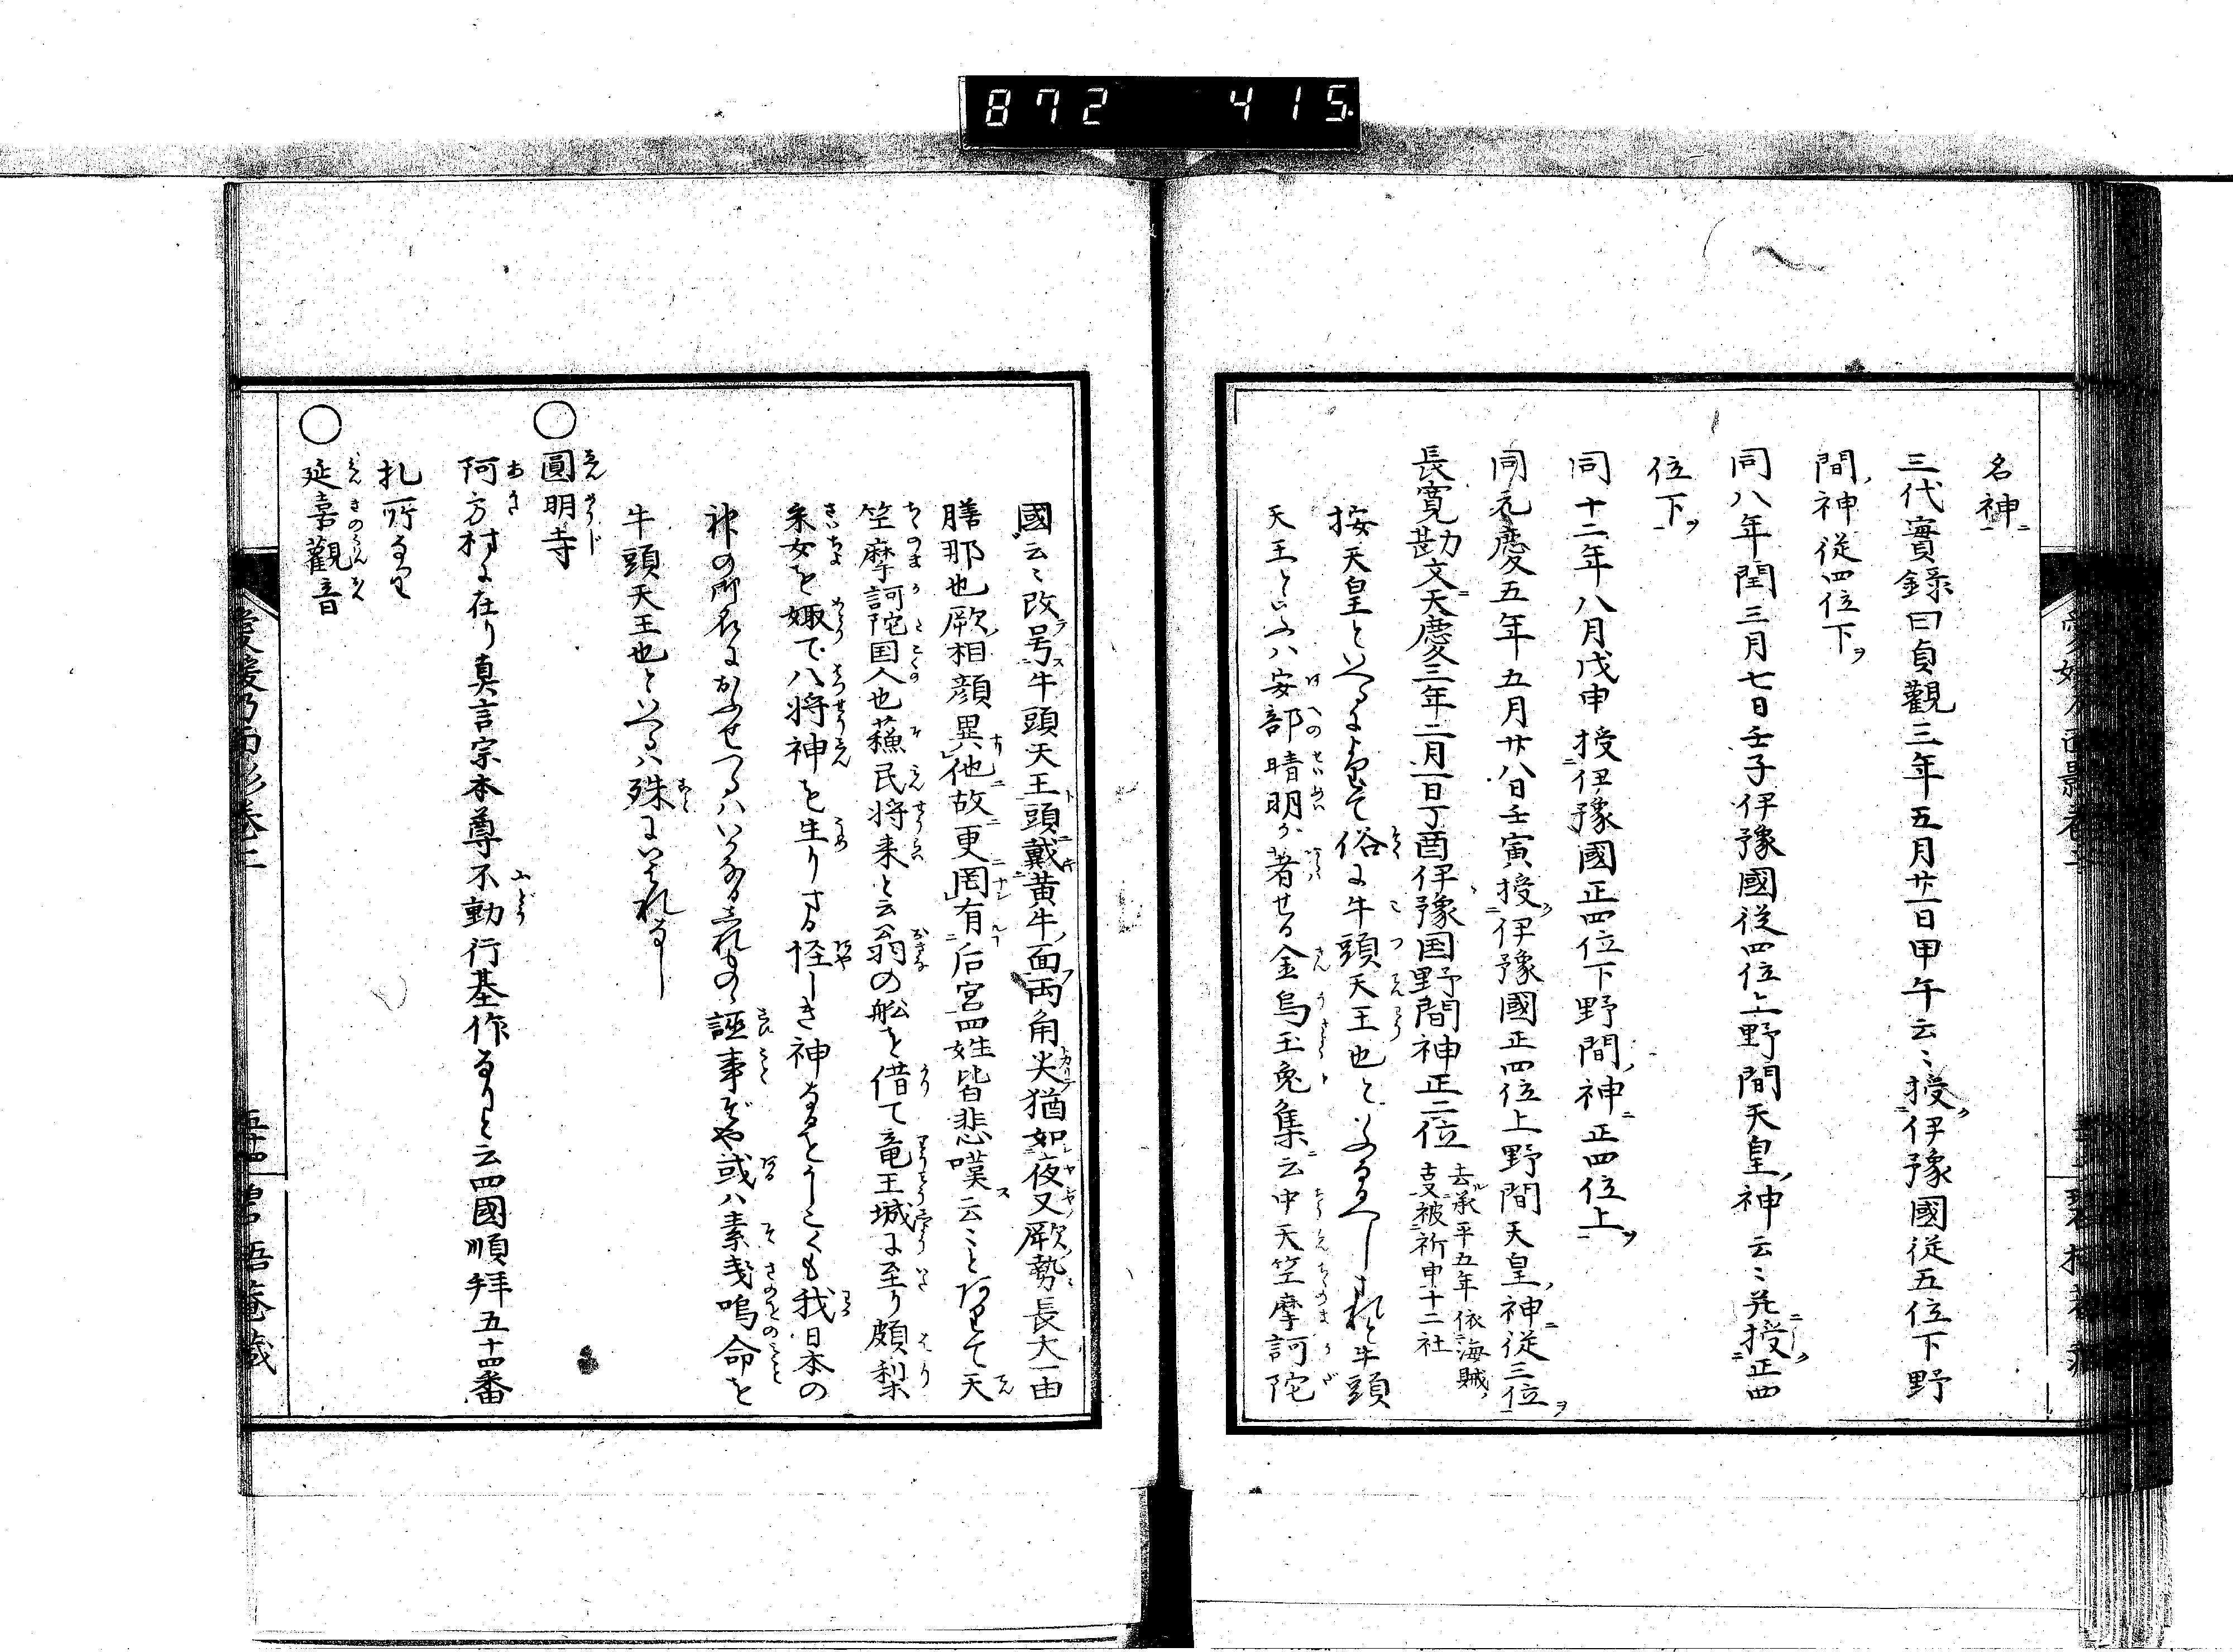 872 415
名神
三代實録曰貞觀三年五月廿一日甲午云〻授伊豫國従五位下野
間神従四位下
同八年閏三月七日壬子伊豫國従四位上野間天皇神云〻並授正四
位下
同十二年八月戊申授伊豫國正四位下野間神正四位上
同元慶五年五月廿八日壬寅授伊豫國正四位上野間天皇神従三位
長寛勘文天慶三年二月一日丁酉伊豫国野間神正二位
去承平五年依海賊
支被祈申十二社
按天皇といへるによりて俗に牛頭天王也といふなるへしされと牛頭
天王といふハ安部晴明か著せる金烏玉兎集云中天竺摩訶陀
國云〻改号牛頭天王頭戴黄牛面両角尖猶如夜叉厥勢長大一由
膳那也厥相顔異他故更罔有后宮四姓皆悲嘆云〻とありて天
竺摩訶陀国人也蘓民将来と云翁の舩を借て竜王城に至り頗梨
采女を娵て八将神を生りする怪しき神なるをかしこくも我日本の
神の御名におふせつるハいかなるしれものゝ誣事そや或ハ素戔嗚命を
牛頭天王也といへるハ殊にいはれなし
○圓明寺
阿方村に在り真言宗本尊不動行基作なりと云四國順拜五十四番
札所なり
○延喜觀音
愛媛乃面影巻二
碧梧菴蔵